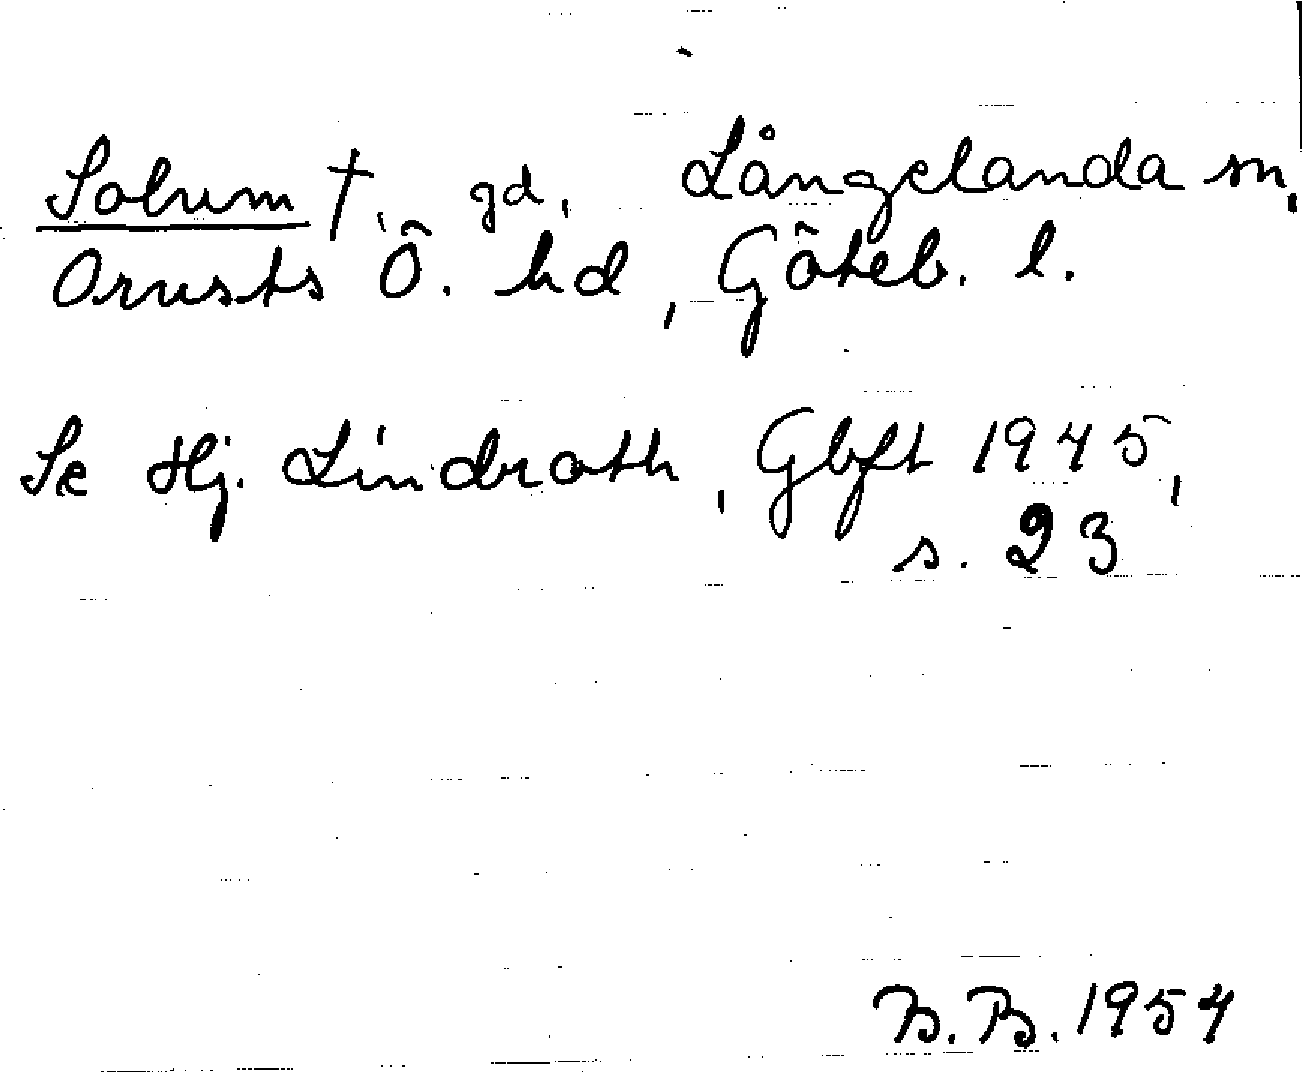 Solum †, gd, Långelanda sn,
Orusts Ö. hd, Göteb. l.
Se Hj. Lindroth, Gbft 1945,
s. 23
B. B. 1954